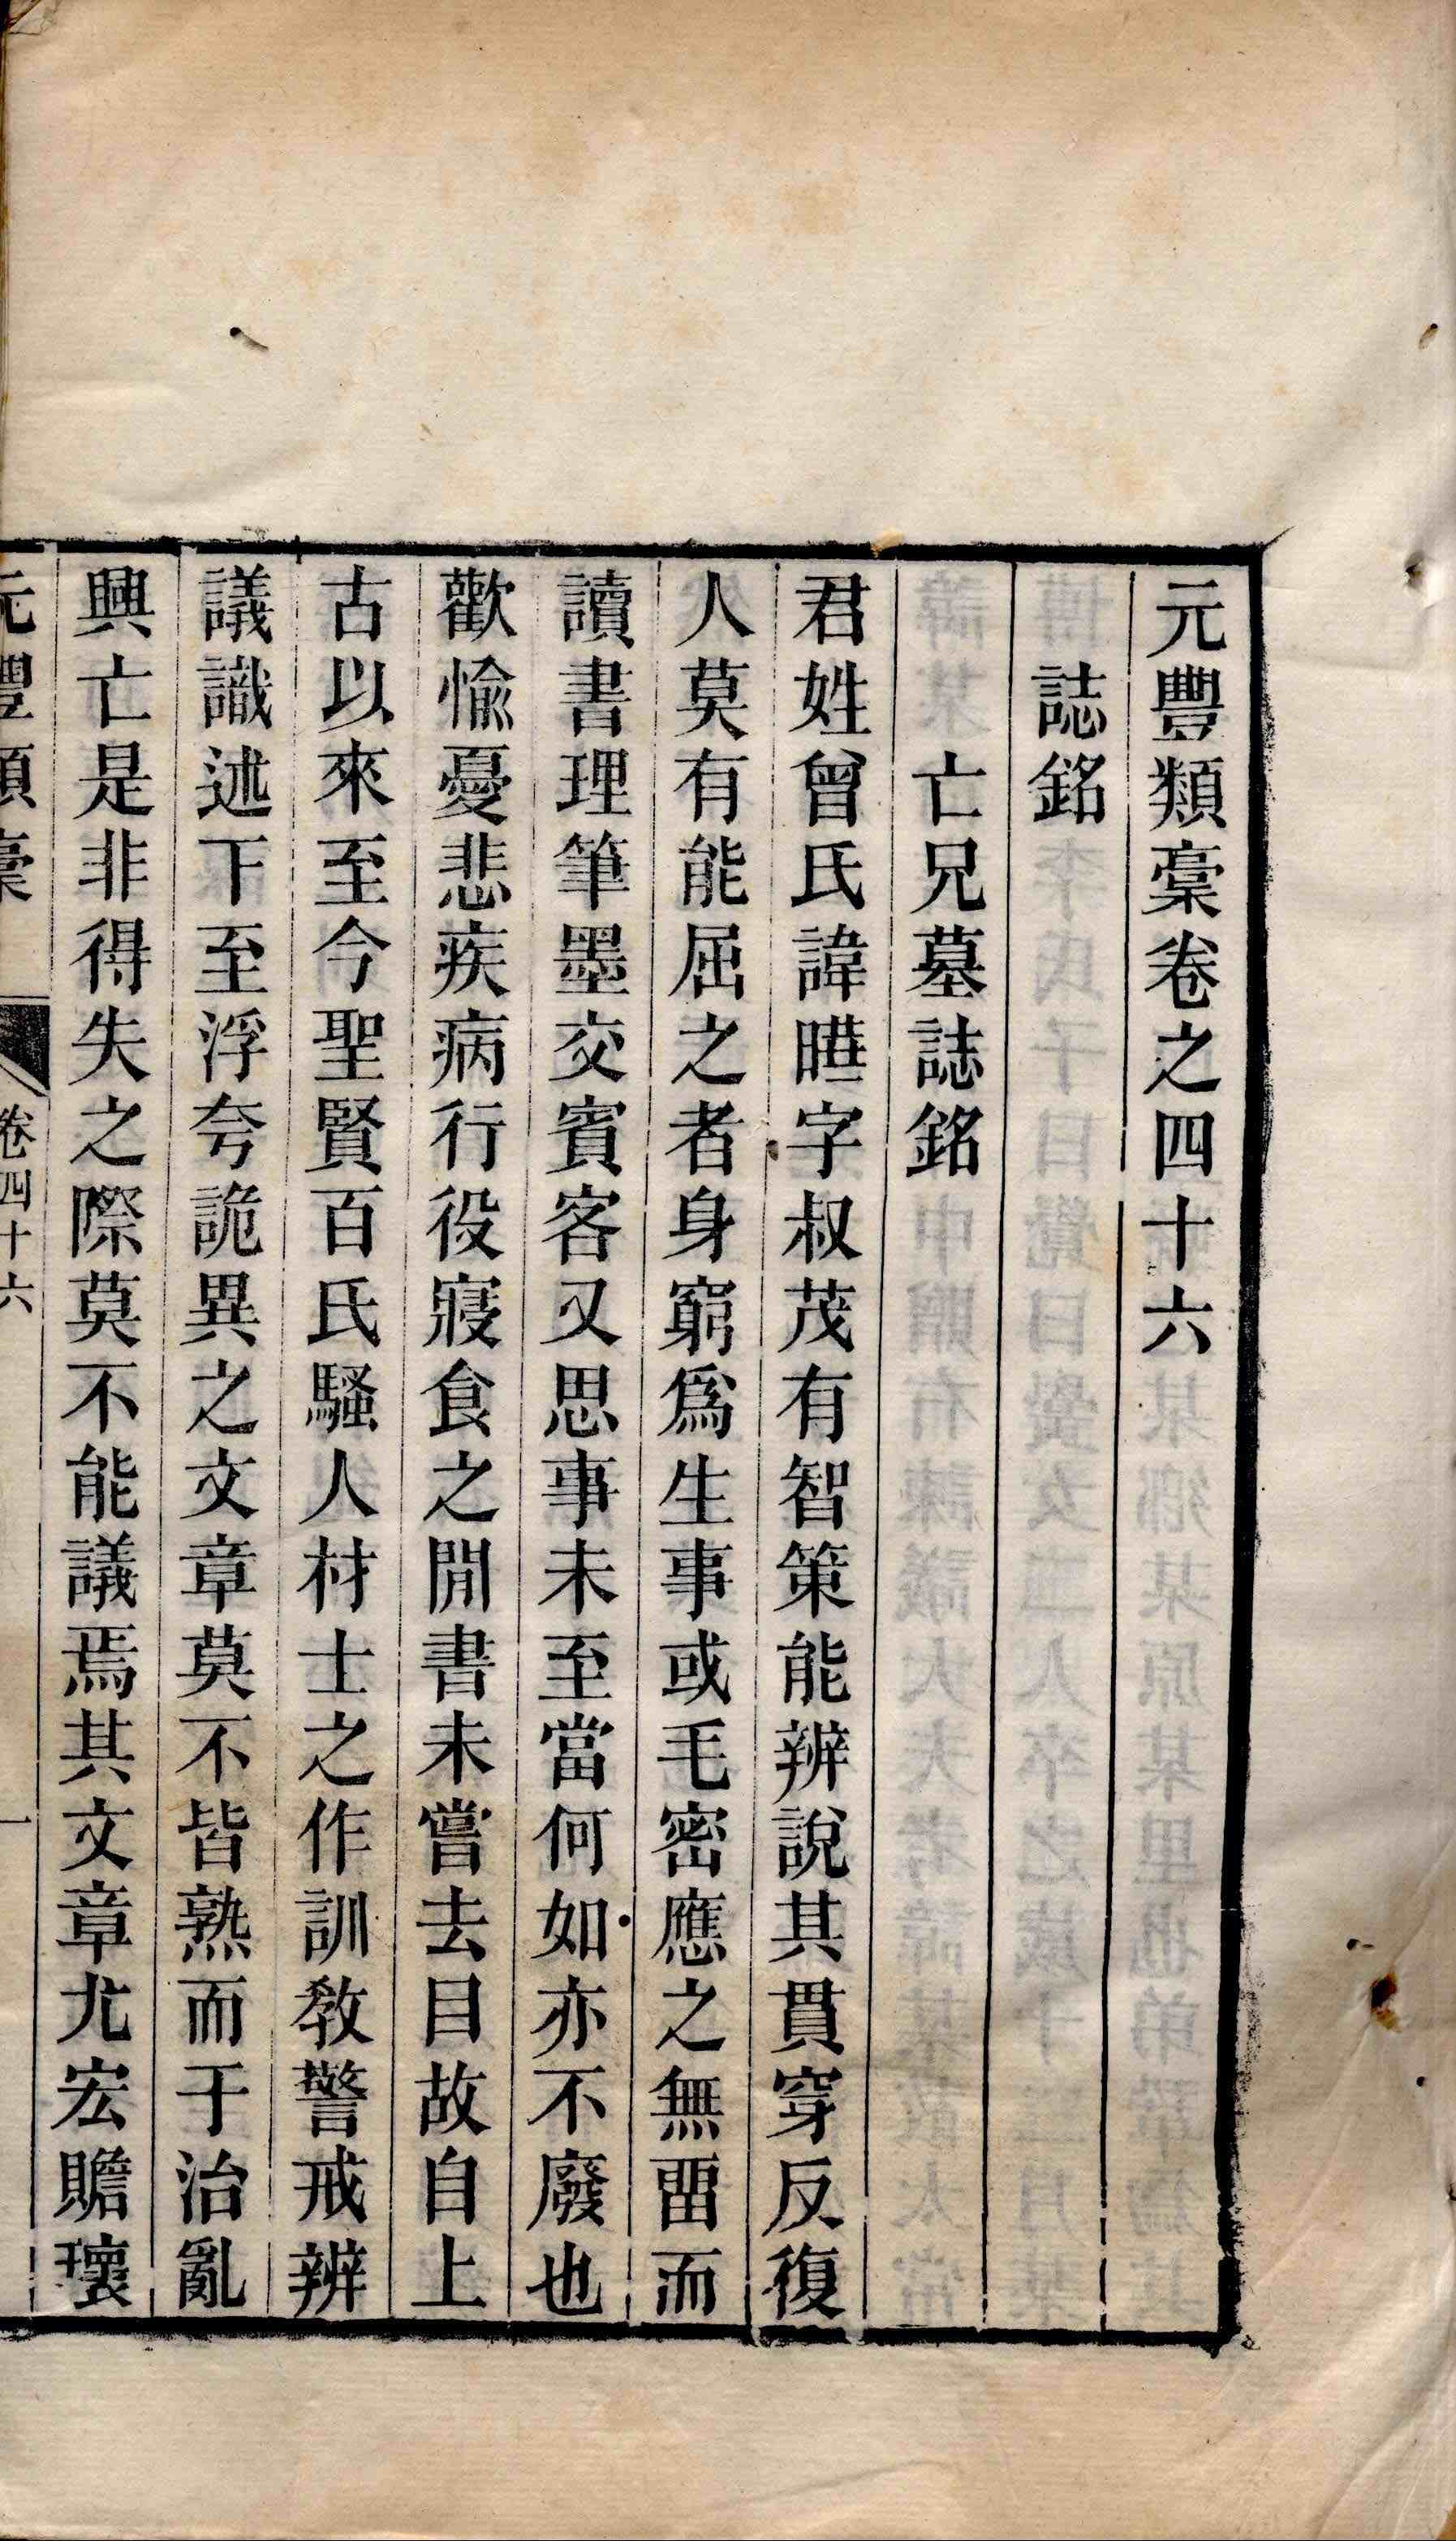 元豐類稾卷之四十六
誌銘
亡兄墓誌銘
君姓曾氏諱曄字叔茂有智策能辨說其貫穿反復
人莫有能屈之者身窮爲生事或毛密應之無畱而
讀書理筆墨交賓客又思事未至當何如亦不廢也
歡愉憂悲疾病行役寢食之閒書未嘗去目故自上
古以來至今聖賢百氏騷人材士之作訓敎警戒辨
議識述下至浮夸詭異之文章莫不皆熟而于治亂
興亡是非得失之際莫不能議焉其文章尤宏贍瓌
元豐類稾 卷四十六 一